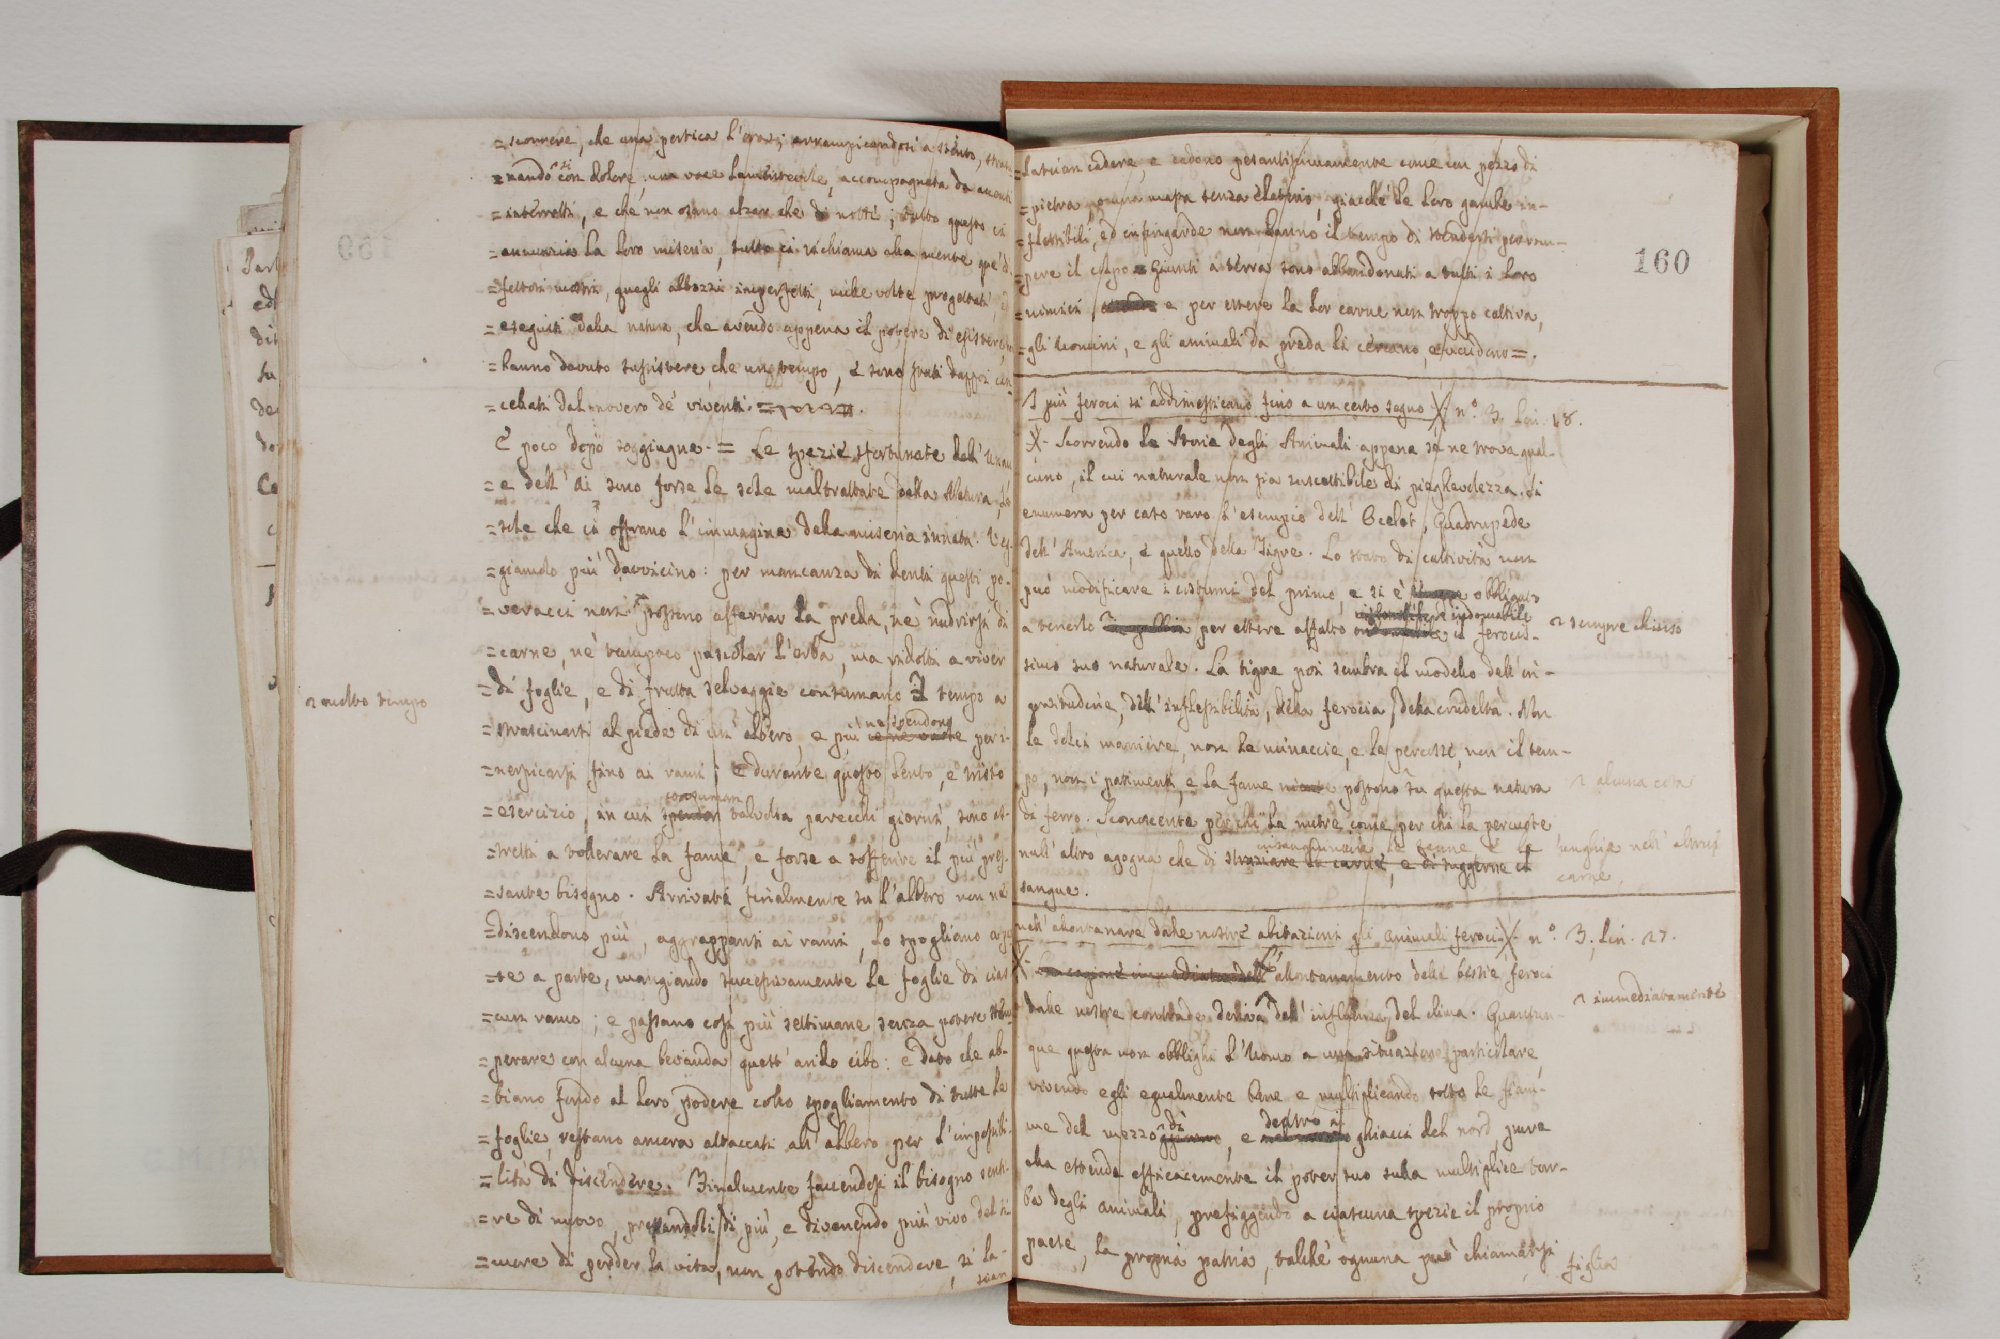 =scorrere, che una pertica l'ora; arrampicandosi a stento, stras
=nando con dolore, una voce lamentevole, accompagnata da accenti
=interrotti, e che non osano alzar che di notte; tutto questo ci
=annunzia la loro miseria, tutto ci richiama alla mente que' di
=fettosi mostri, quegli abbozzi imperfetti, mille volte progettati, ed
=eseguiti dalla natura, che avendo appena il potere di esistere, non
=hanno dovuto sussistere che un tempo, e sono stati dappoi can
=cellati dal novero de' viventi.=
E poco dopo soggiugne.= Le spezie sfortunate dell' unau
=e dell' ai sono forse le sole maltrattate dalla Natura, le
=sole che ci offrano l'immagine della miseria innata. Veg-
=giamolo più davvicino: per mancanza di denti questi po-
=veracci non possono afferrar la preda, nè nudrirsi di
=carne, nè tampoco pascolar l'erba, ma ridotti a viver
=di foglie, e di frutta selvaggie consumano il tempo a
molto tempo
=strascinarsi al piede di un albero, e più ne spendono per i-
=nerpicarsi fino ai rami; e durante questo lento, e tristo
=esercizio, in cui consuman talvolta parecchi giorni, sono co-
=stretti a tollerare la fame, e forse a soffrire il più pres-
=sante bisogno. Arrivati finalmente su l'albero non ne
=discendono più, aggrappansi ai rami, lo spogliano a par
=te a parte, mangiando successivamente le foglie di cias
=cun ramo; e passano così più settimane senza potere stem
=perare con alcuna bevanda quest' arido cibo: e dato che ab-
=biano fondo al loro podere collo spogliamento di tutte le
=foglie, restano ancora attaccati all' albero per l'impossibi-
=lità di discendere. Finalmente faccendosi il bisogno senti-
=re di nuovo, pressandoli di più, e divenendo più vivo del ti-
=more di perder la vita, non potendo discendere, si la-
scian
160
=lascian cadere, e cadono pesantissimamente come un pezzo di
=pietra, o una massa senza elaterio, giacchè le loro gambe in-
=flessibili, ed infingarde non hanno il tempo di stendersi per rom-
=pere il colpo. Giunti a terra sono abbandonati a tutti i loro
=nimici, e per essere la lor carne non troppo cattiva,
=gli uomini, e gli animali da preda li cercano, e uccidono=.
I più feroci si addimesticano fino a un certo segno X. n.° 3. Lin. 18.
X. Scorrendo la Storia degli Animali appena se ne trova qual-
cuno, il cui naturale non sia suscettibile di pieghevolezza. Si
enumera per caso raro l'esempio dell' Ocelot, Quadrupede
dell' America, e quello della Tigre. Lo stato di cattività non
può modificare i costumi del primo, e si è obbligato
a tenerlo per essere affatto indomabile il ferocis-
sempre chiuso
simo suo naturale. La tigre poi sembra il modello dell' in-
gratitudine, dell' inflessibilità, della ferocia, della crudeltà. Non
le dolci maniere, non le minaccie, e le percosse, non il tem-
po, non i patimenti, e la fame niente possono su questa natura
alcuna cosa
di ferro. Sconoscente per chi la nutre come per chi la percuote
null' altro agogna che di insanguinarsi le zanne e le
unghie nell' altrui
carne.
stranare la carne, e di suggerne il
sangue.
nell' allontanare dalle nostre abitazioni gli animali feroci X. n.° 3. Lin. 27.
X. L' allontanamento delle bestie feroci
dalle nostre contrade deriva dall' influenza del clima. Quantun-
immediatamente
que questa non obblighi l'Uomo a una situazione particolare,
vivendo egli egualmente bene e multiplicando sotto le fiam-
me del mezzodì, e dentro ai ghiacci del nord, pure
ella estende efficacemente il poter suo sulla multiplice tur-
ba degli animali, prefiggendo a ciascuna spezie il proprio
paese, la propria patria, talchè ognuna può chiamarsi
figlia